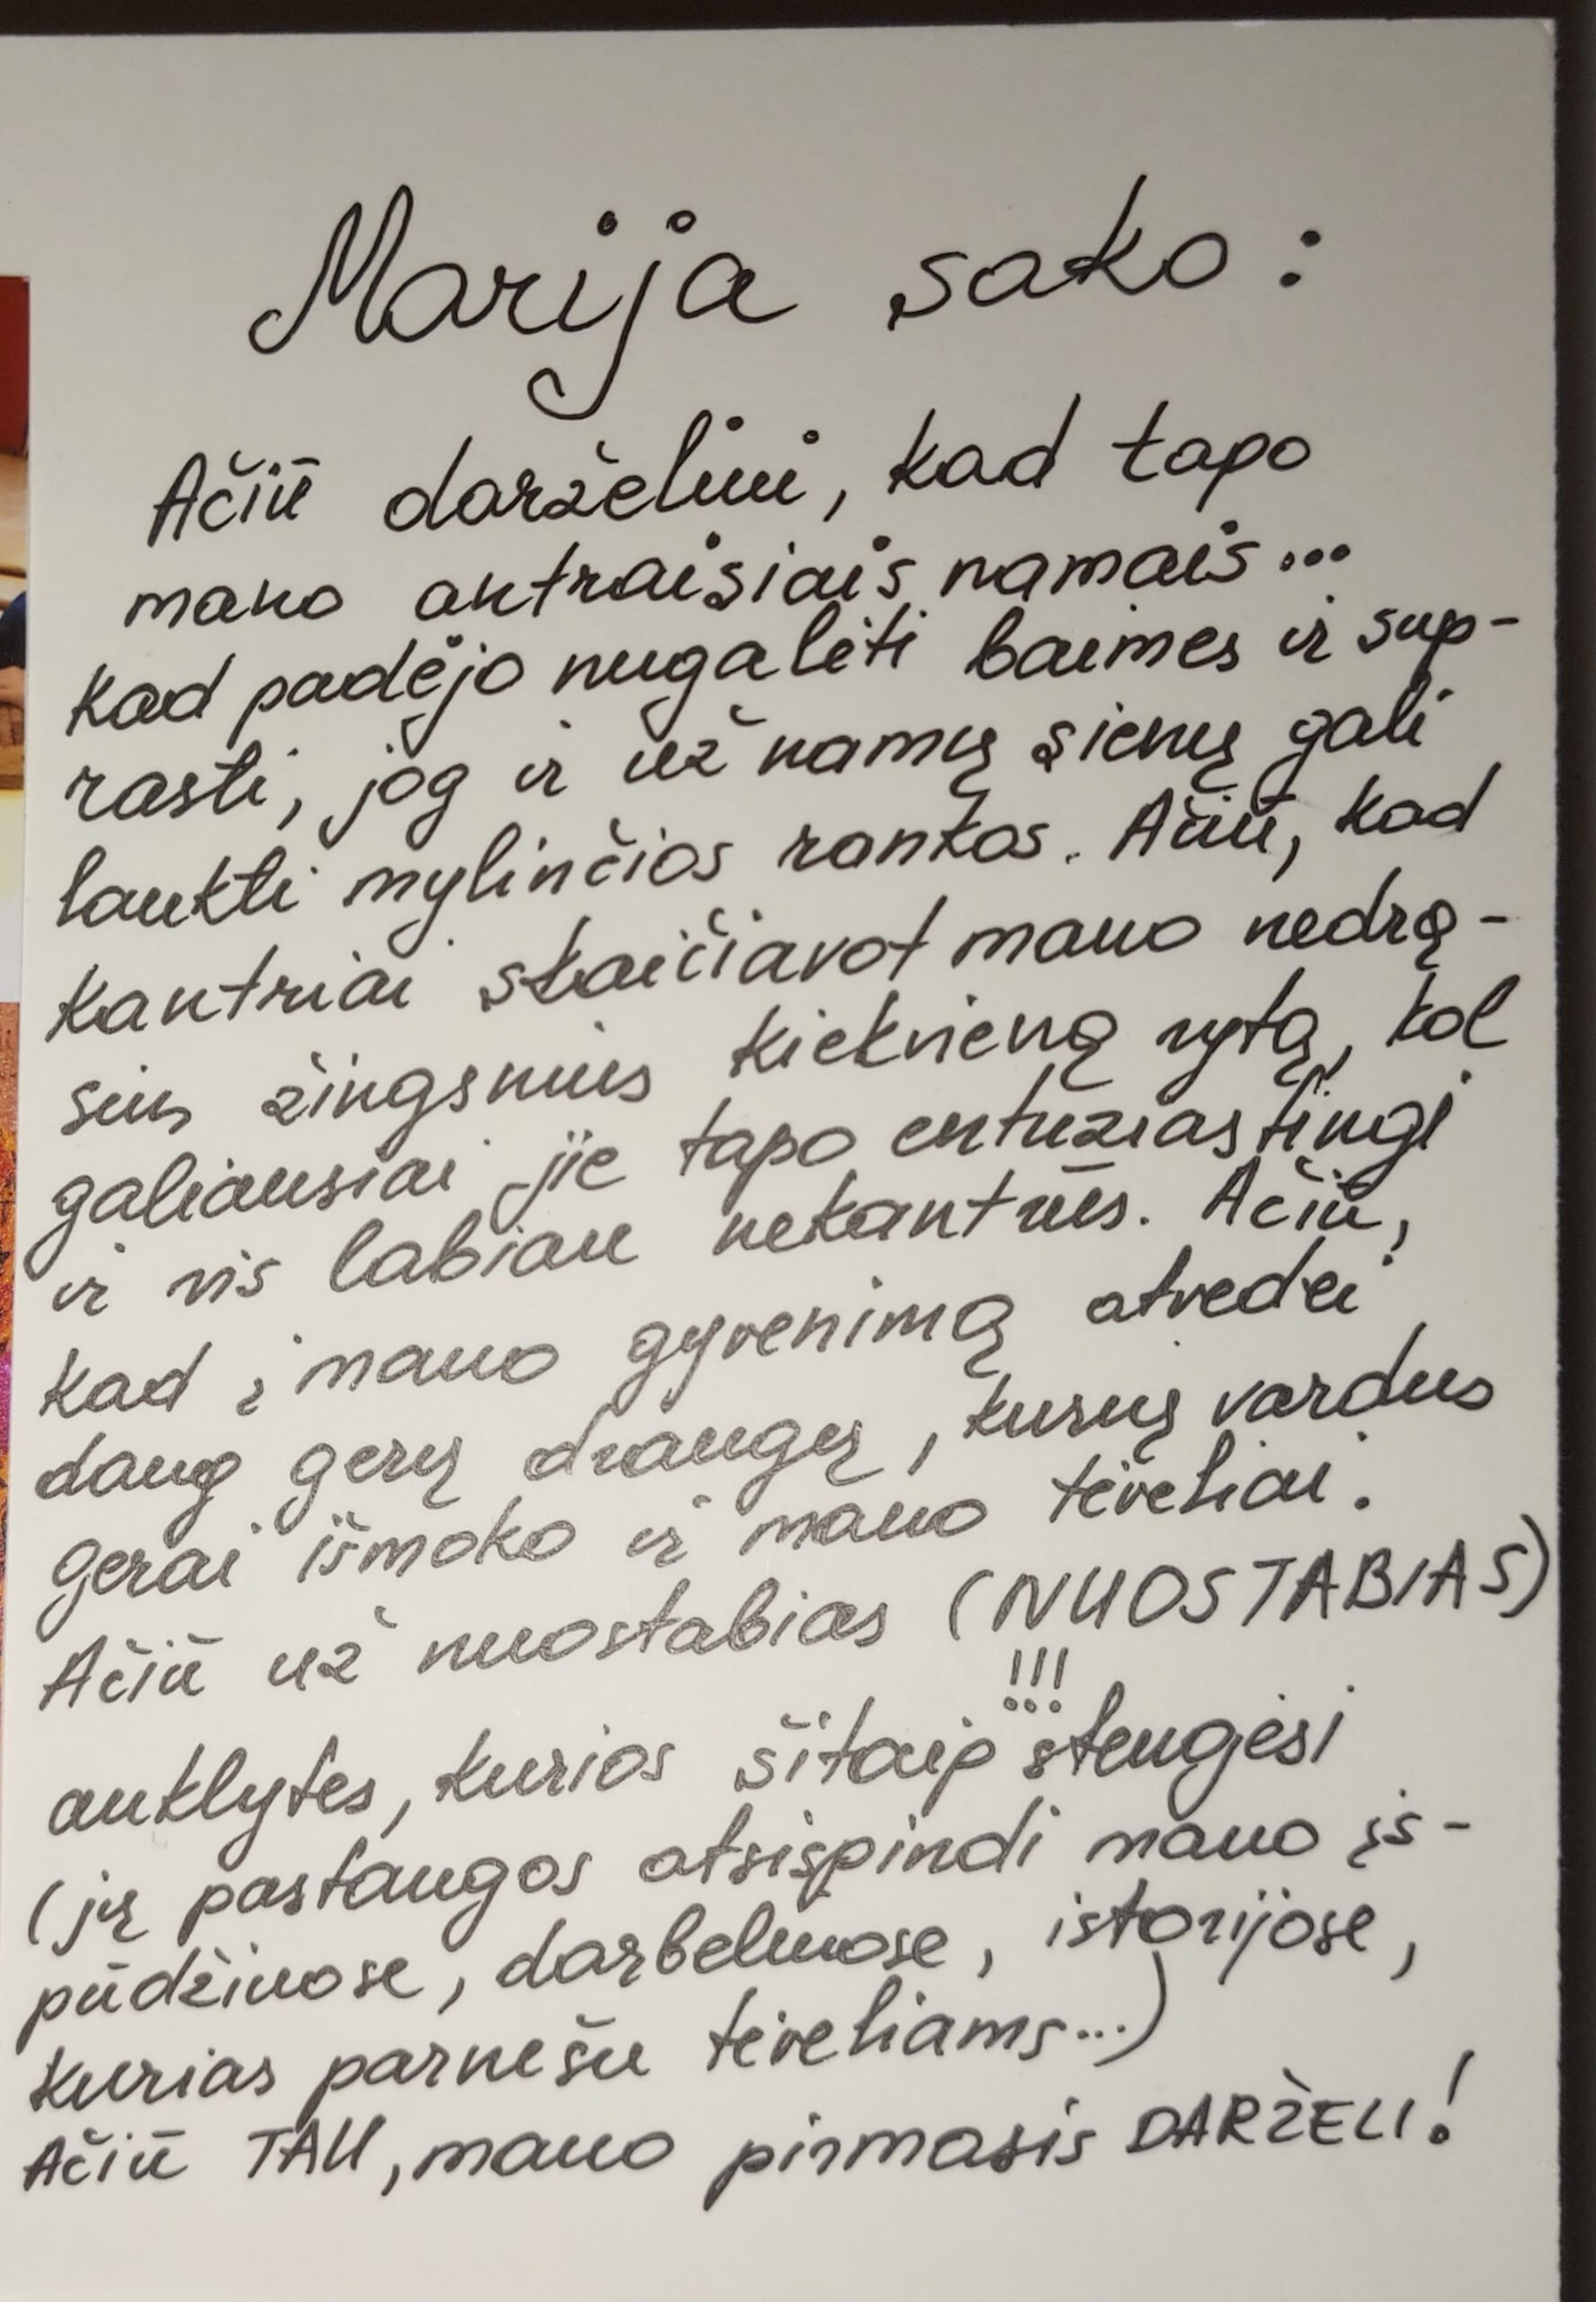 Marija sako:
Ačiū darželiui, kad tapo
mano antraisiais namais...
kad padėjo nugalėti baimes ir sup-
rasti, jog ir už namų sienų gali
laukti mylinčios rankos. Ačiū, kad
kantriai skaičiavot mano nedrą-
sius žingsnius kiekvieną rytą, kol
galiausiai jie tapo entuziastingi
ir vis labiau nekantrūs. Ačiū,
kad į mano gyvenimą atvedei
daug gerų draugų, kurių vardus
gerai išmoko ir mano tėveliai.
Ačiū už nuostabias (NUOSTABIAS)
!!!
auklytes, kurios šitaip stengėsi
(jų pastangos atsispindi mano įs-
pūdžiuose, darbeliuose, istorijose,
kurias parnešu tėveliams...)
Ačiū TAU, mano pirmasis DARŽELI!